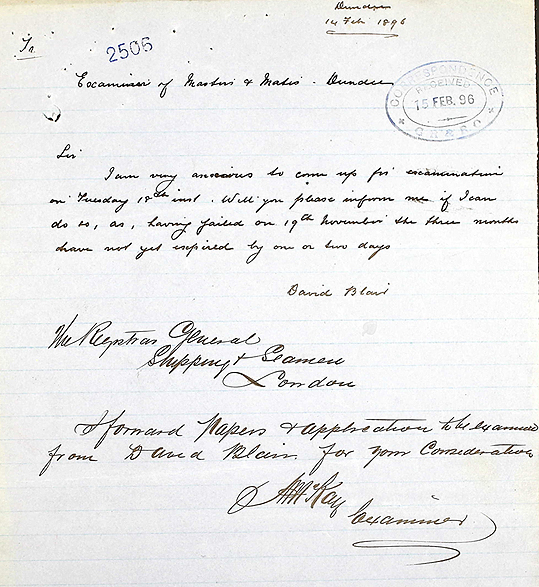 Dundee
14 Feb 1896
To
2506
Examiner of Masters & Mates - Dundee
CORRESPONDENCE
RECEIVED
15 FEB. 96
Sir
I am very anxious to come up for examination
on Tuesday 18th inst. Will you please inform me if I can
do so, as, having failed on 19th November the three months
have not yet expired by one or two days
David Blair
The Registrar General
Shipping & Seamen
London
I forward Papers & application to be examined
from David Blair for your Consideration
Examiner